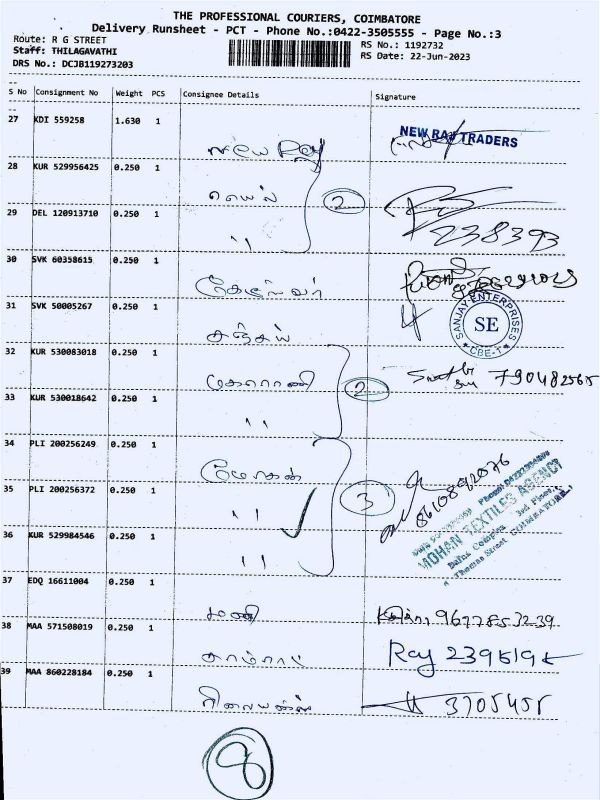 THE PROFESSIONAL COURIERS, COIMBATORE
Delivery Runsheet - PCT - Phone No.:0422-3505555 - Page No.:3
Route: R G STREET
Staff: THILAGAVATHI
DRS No.: DCJB119273203
RS No.: 1192732
RS Date: 22-Jun-2023
S No Consignment No Weight PCS Consignee Details Signature
27 KDI 559258 1.630 1
NEW RAJ TRADERS
28 KUR 529956425 0.250 1
2
29 DEL 120913710 0.250 1
" 238393
30 SVK 60358615 0.250 1
31 SVK 50005267 0.250 1
SANJAY ENTERPRISES
SE
CBE-1
சஞ்சய்
32 KUR 530083018 0.250 1
மகாராணி 2 790482565
33 KUR 530018642 0.250 1
"
34 PLI 200256249 0.250 1
மோகன் 8610892076
35 PLI 200256372 0.250 1
" 3
MOHAN TEXTILES AGENCY
3rd Floor,
Thomas Street COIMBATORE.
36 KUR 529984546 0.250 1
"
37 EDQ 16611004 0.250 1
மணி 9677853239
38 MAA 571508019 0.250 1
காமராட் Ray 2395195
39 MAA 860228184 0.250 1
ரிலையன்ஸ் 3705455
8